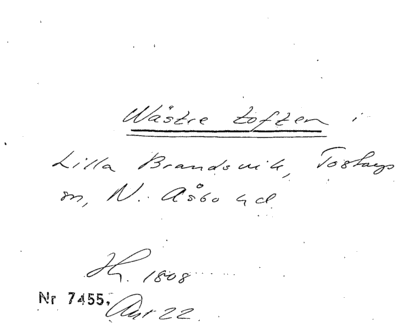 Wästre tofter i
Lilla Brandsvik, Toshays
sn, N. Åsbo hd.
Jh. 1808
Nr 7455,
Ant 22